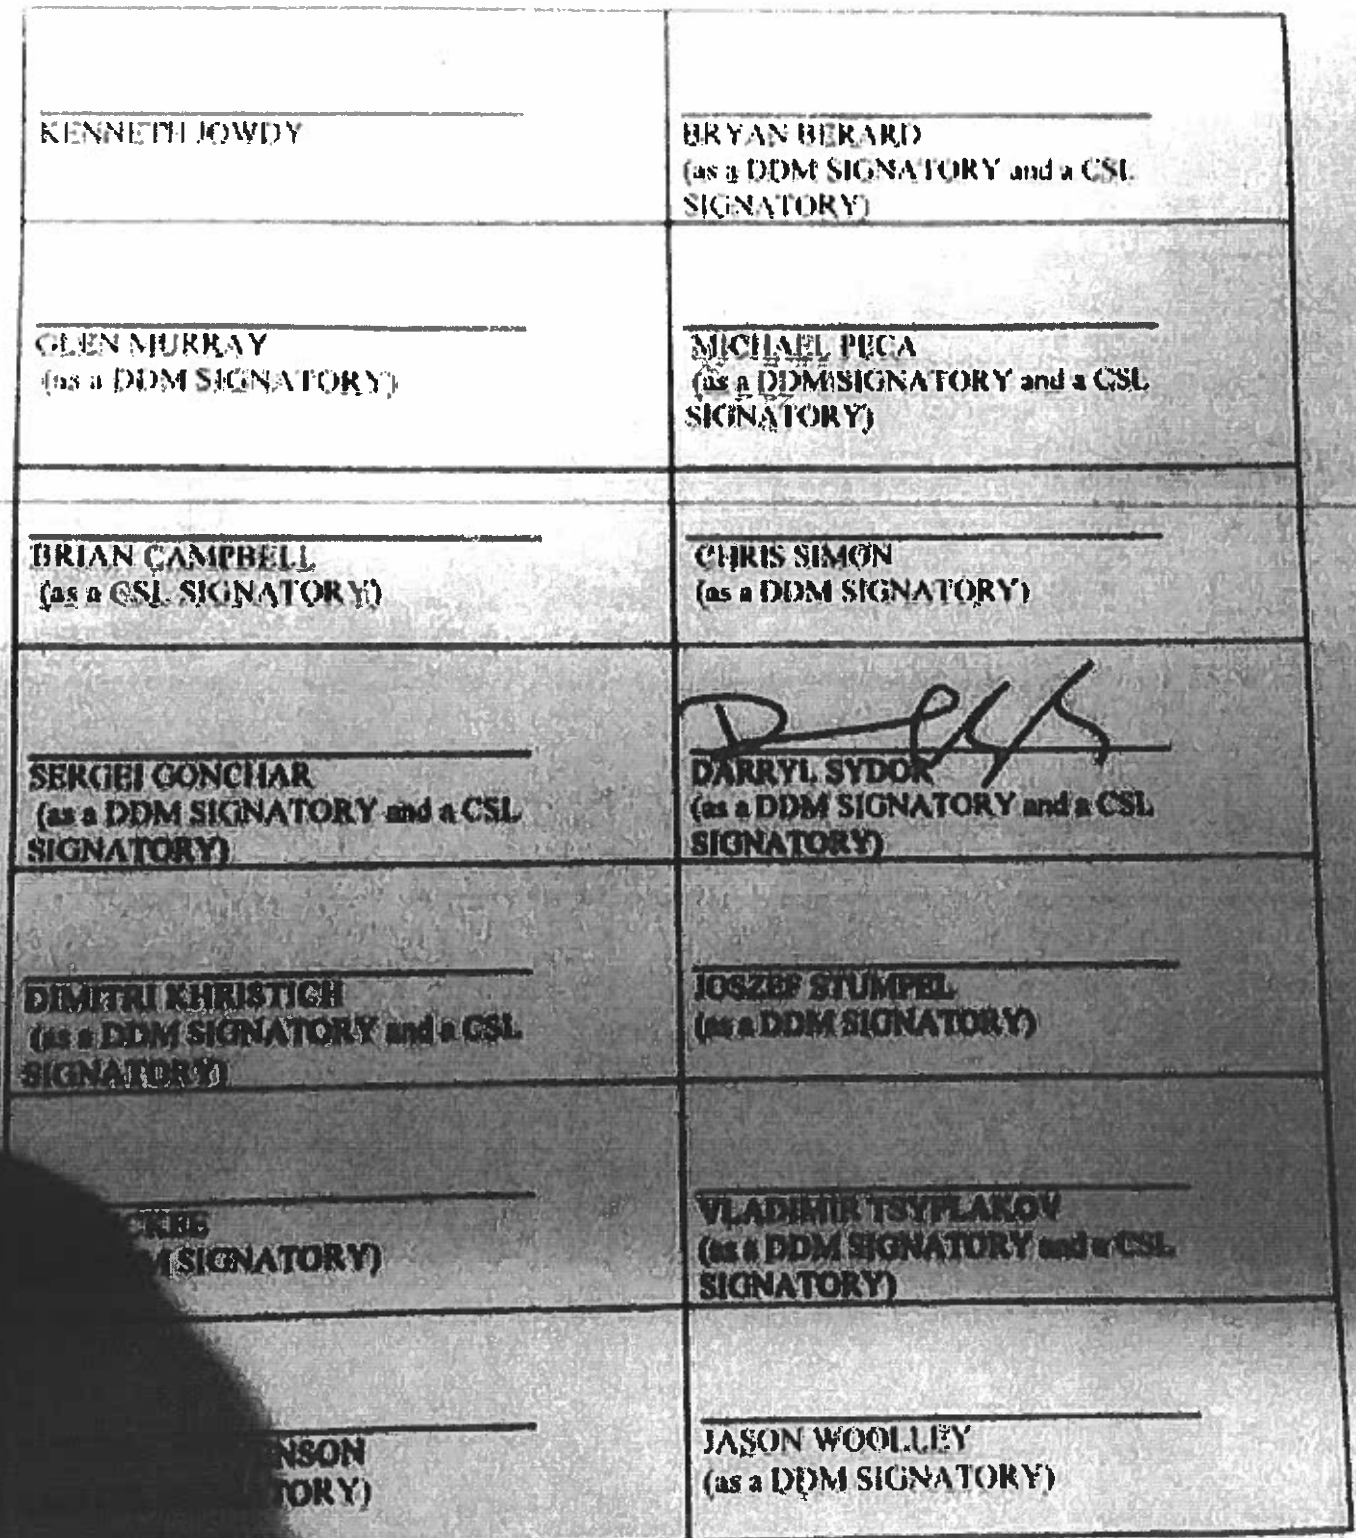 KENNETH JOWDY
BRYAN BERARD
(as a DDM SIGNATORY and a CSL
SIGNATORY)
GLEN MURRAY
(as a DDM SIGNATORY)
MICHAEL PECA
(as a DDM SIGNATORY and a CSL
SIGNATORY)
BRIAN CAMPBELL
(as a CSL SIGNATORY)
CHRIS SIMON
(as a DDM SIGNATORY)
SERGEI GONCHAR
(as a DDM SIGNATORY and a CSL
SIGNATORY)
DARRYL SYDOR
(as a DDM SIGNATORY and a CSL
SIGNATORY)
DIMITRI KHRISTICH
(as a DDM SIGNATORY and a CSL
SIGNATORY)
JOSZEF STUMPEL
(as a DDM SIGNATORY)
SIGNATORY)
VLADIMIR TSYPLAKOV
(as a DDM SIGNATORY and a CSL
SIGNATORY)
JASON WOOLLEY
(as a DDM SIGNATORY)